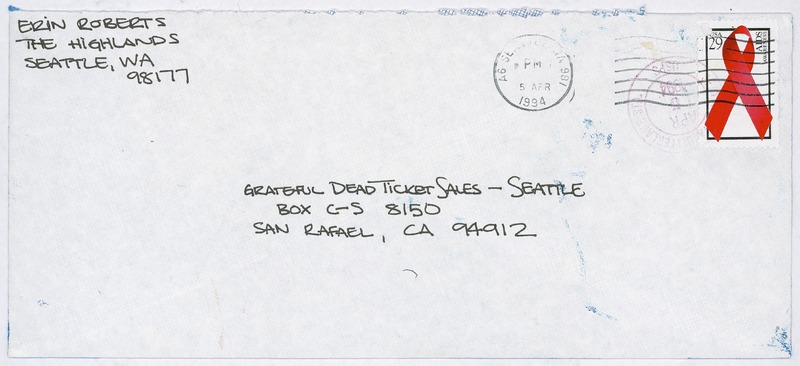 ERIN ROBERTS
THE HIGHLANDS
SEATTLE, WA
98177
PM
5 APR
1994
USA
29
AIDS
GRATEFUL DEAD TICKET SALES – SEATTLE
BOX C-S 8150
SAN RAFAEL, CA 94912